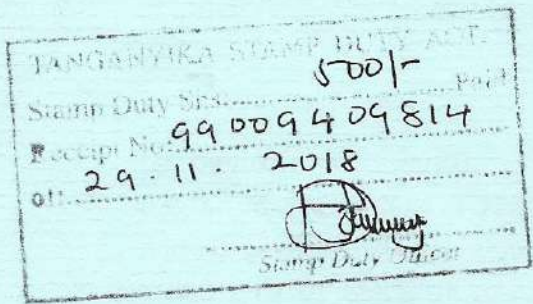 TANGANYIKA STAMP DUTY ACT.
500/-
Stamp Duty Shs. Paid
Receipt No: 99009409814
of: 29.11.2018
Stamp Duty Officer